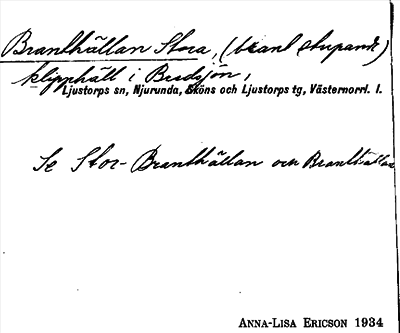 Branthällan Stora, (brant stupande)
klipphäll i Bredsjön,
Ljustorps sn, Njurunda, Sköns och Ljustorps tg, Västernorrl. l.
Se Stor-Branthällan och Branthällan
ANNA-LISA ERICSON 1934